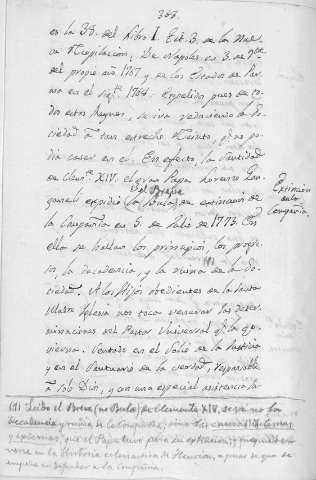 383.
es la 38. del Libro I. tit. 3. de la Nueva
Recopilacion; De Napoles en 3. de Nbre
del propio año 1767 y de los Estados de Parma
en el sigte. 1768. Expelidos pues de todos
estos Reynos, se iva reduciendo la Sociedad
a tan estrecho recinto, qe. no podia
caver en el. En efecto, la Santidad
de Clemte. XIV. el gran Papa Lorenzo Ganganeli
expidió la Bula de extincion de
el Breve
la Compañia en 5. de Julio de 1773. En
Extincion
de la
Compañia
ella se hallan los principios, los progresos,
la decadencia, y la ruina de la Sociedad. (1)
A los Hijos obedientes de la Santa
Iglesia nos toca venerar las determinaciones
del Pastor Universal qe. la govierna.
Sentado en el Solio de la Justicia
y en el Santuario de la verdad, responsable
a solo Dios, y con una especial asistencia
(1) Leido el Breve (no Bula) de Clemente XIV,
decadencia y ruina de la Compañia,
y que el Papa tuvo para su extincion,
en la Historia eclesiastica de
a la Compañia.